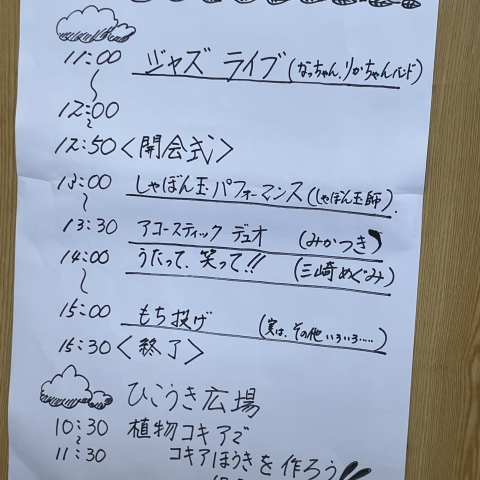 11:00 ジャズ ライブ(なっちゃん.りかちゃんバンド)
〜
12:00
〜
12:50<開会式>
13:00 しゃぼん玉パフォーマンス(しゃぼん玉師).
〜
13:30 アコースティック デュオ (みかつき)
14:00 うたって、笑って!! (三崎めぐみ)
〜
15:00 もち投げ (実は、その他いろいろ……)
15:30<終了>
ひこうき広場
10:30 植物コキアで
〜
11:30 コキアほうきを作ろう